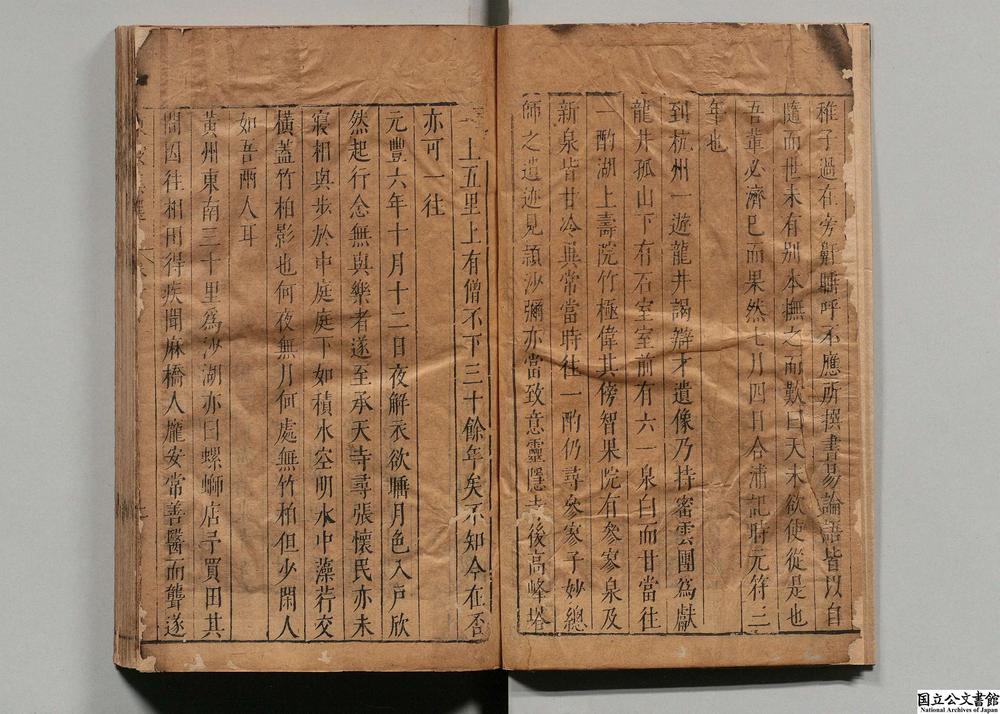 稚子過在旁鼾睡呼不應所撰書易論語皆以自
隨而世未有别本撫之而歎曰天未欲使從是也
吾輩必濟已而果然七月四日合浦記時元符三
年也
到杭州一遊龍井謁辯才遺像乃持密雲團爲獻
龍井孤山下有石室室前有六一泉白而甘當往
一酌湖上壽院竹極偉其傍智果院有參寥泉及
新泉皆甘冷異常當時往一酌仍尋參寥子妙總
師之遺迹見頴沙彌亦當致意靈隱寺後高峰塔
一上五里上有僧不下三十餘年矣不知今在否
亦可一往
元豐六年十月十二日夜解衣欲睡月色入戸欣
然起行念無與樂者遂至承天寺尋張懷民亦未
寢相與步於中庭庭下如積水空明水中藻荇交
橫蓋竹柏影也何夜無月何處無竹柏但少閑人
如吾兩人耳
黃州東南三十里爲沙湖亦曰螺螄店予買田其
間因往相田得疾聞麻橋人龐安常善醫而聾遂
国立公文書館
National Archives of Japan